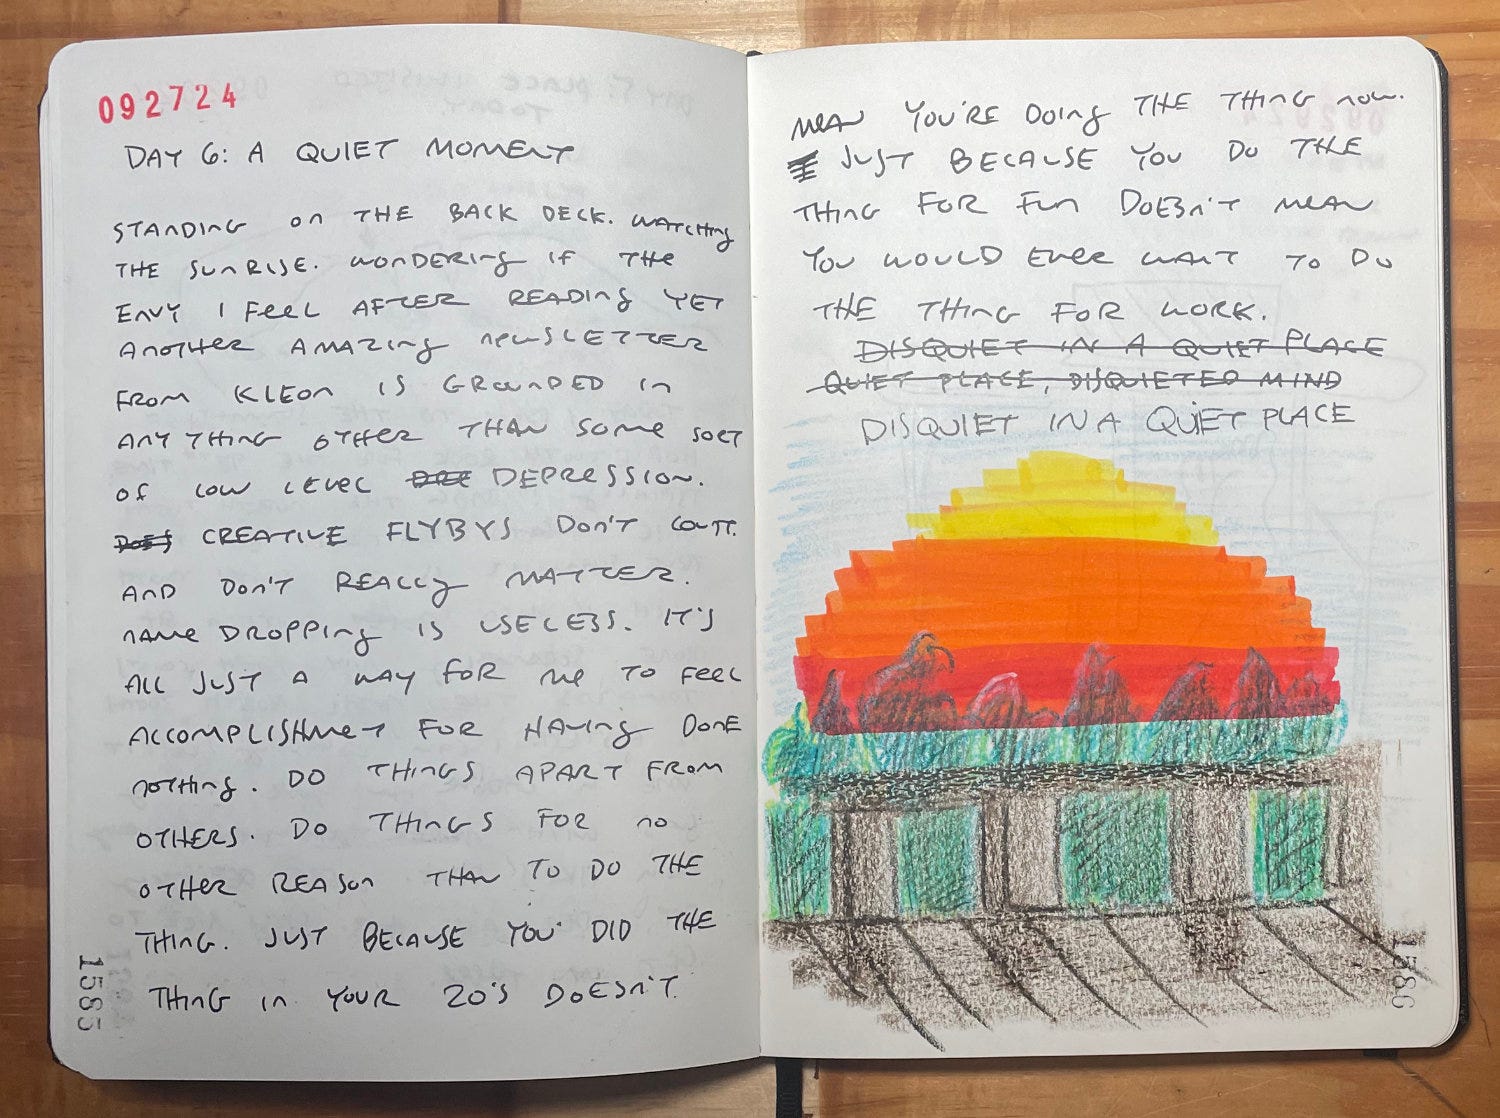 092724
DAY 6: A QUIET MOMENT
STANDING ON THE BACK DECK. WATCHING
THE SUNRISE. WONDERING IF THE
ENVY I FEEL AFTER READING YET
ANOTHER AMAZING NEWSLETTER
FROM KLEON IS GROUNDED IN
ANYTHING OTHER THAN SOME SORT
OF LOW LEVEL DEPRESSION.
DOES CREATIVE FLYBYS DON'T COUNT.
AND DON'T REALLY MATTER.
NAME DROPPING IS USELESS. IT'S
ALL JUST A WAY FOR ME TO FEEL
ACCOMPLISHMET FOR HAVING DONE
NOTHING. DO THINGS APART FROM
OTHERS. DO THINGS FOR NO
OTHER REASON THAN TO DO THE
THING. JUST BECAUSE YOU DID THE
THING IN YOUR 20'S DOESN'T
1585
MEAN YOU'RE DOING THE THING NOW.
JUST BECAUSE YOU DO THE
THING FOR FUN DOESN'T MEAN
YOU WOULD EVER WANT TO DO
THE THING FOR WORK.
DISQUIET IN A QUIET PLACE
QUIET PLACE, DISQUIETED MIND
DISQUIET IN A QUIET PLACE
1586